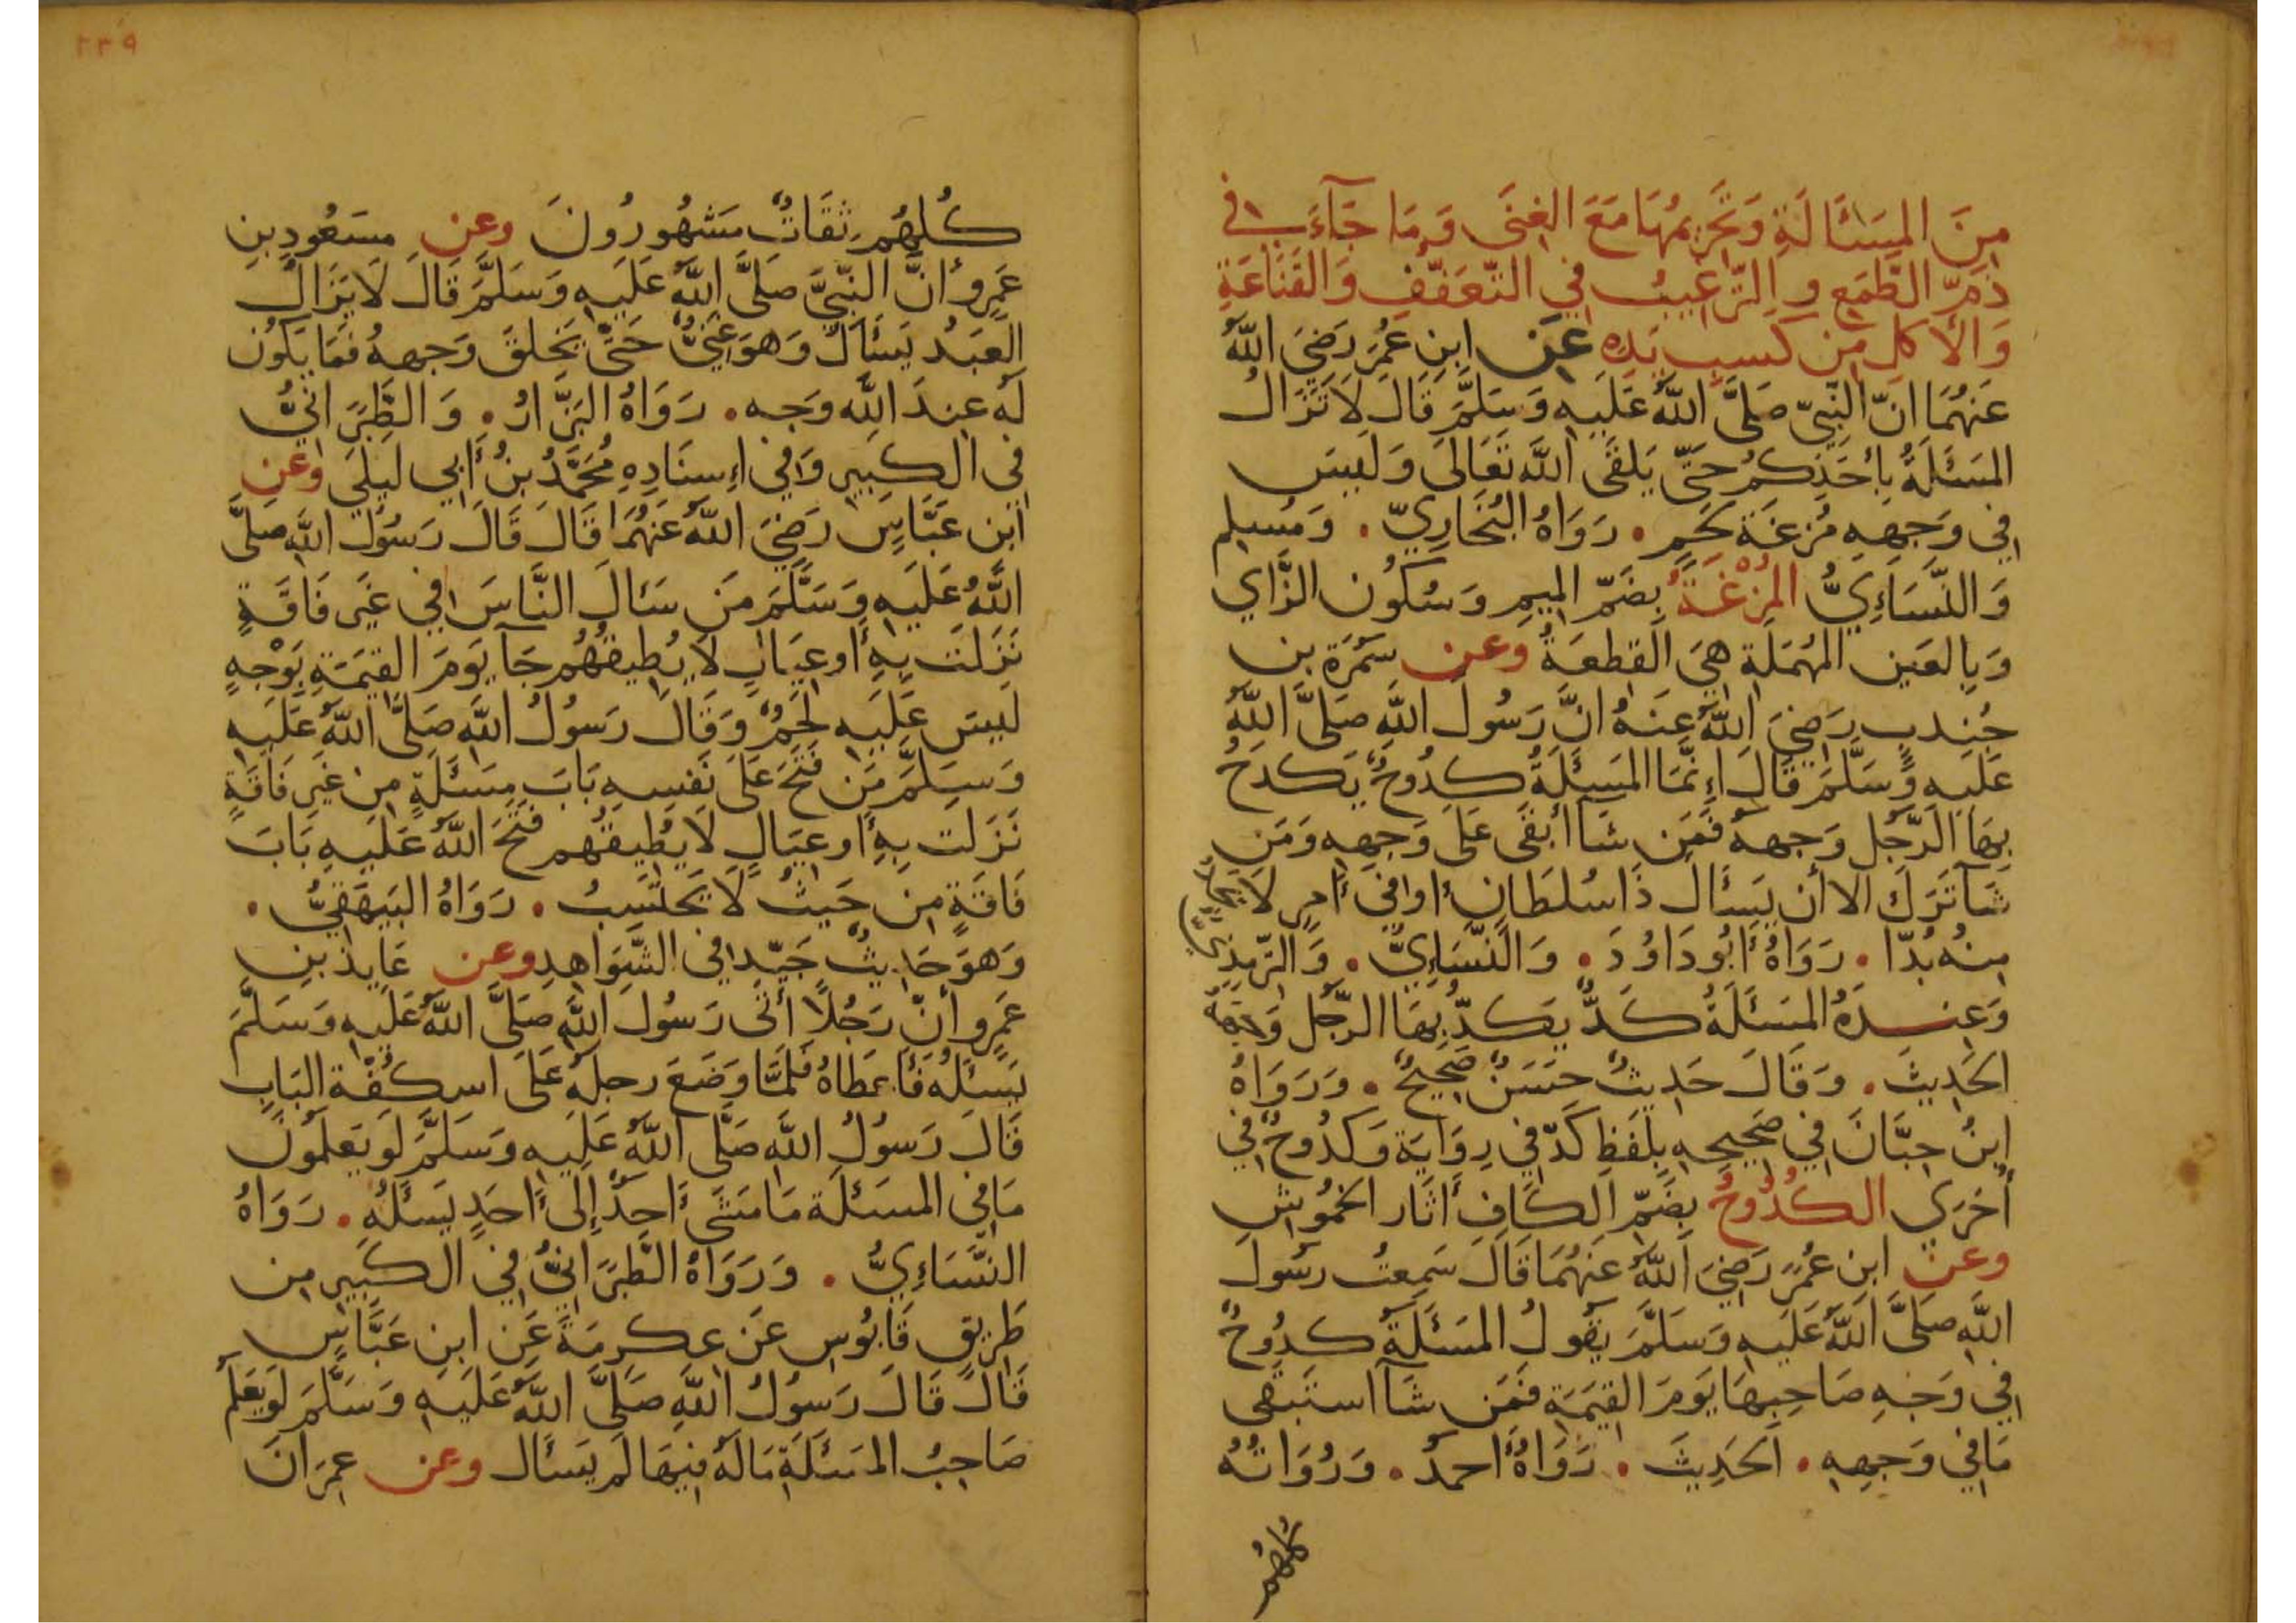 مِنَ المَسْئَالَةِ وَتَحْرِيمُهَا مَعَ الغِنَى وَمَا جَآءَ فِي
ذَمِّ الطَّمَعِ وِالتَّرْغِيبُ فِي التَّعَفُّفِ وَالقَنَاعَةِ
وَالأَكلِ مِن كَسبِ يَدِهِ عَن ابنِ عُمَرَ رَضِيَ اللَّهُ
عَنهُمَا انَّ النَّبِيّ صَلَّى اللَّهُ عَلَيهِ وَسَلَّمَ قَالَ لَا تَزَالُ
المَسْئَلَةُ بِأَحَدِكُم حَتَّى يَلقَى اللَّه تَعَالَى وَلَيسَ
فِي وَجهِهِ مُزعَة لَحمٍ . رَوَاهُ البُخَارِيّ . وَمُسلِم
وَالنَّسَاءِيُّ المُزْعَةُ بِضَمّ المِيمِ وَسُكُون الزَّاي
وَبِالعَين المُهمَلَة هِيَ القِطعَةُ وعن سَمُرَة بن
جُندبٍ رَضِيَ اللَّهُ عَنهُ انَّ رَسُولَ اللَّهِ صَلَّى اللَّهُ
عَلَيهِ وَسَلَّمَ قَالَ اِنَّمَا المَسئَلَةُ كدُوحٌ يَكدَحُ
بِهَا الرَّجُل وَجهَهُ فَمَن شَآ أبقَى عَلَى وَجهِهِ وَمَن
شَآ تَرَكَ الا أن يَسئَالَ ذَا سُلطَانٍ أو فِي أَمرٍ لَا يَجِدُ
مِنهُ بُدّا . رَوَاهُ أَبُو دَاوُدَ . وَالنَّسَاءِيُّ . وَالتِّرمِذيُّ
وَعِندَهُ المَسئَلَةُ كَدٌّ يَكدّ بِهَا الرَّجُل وَجهَهُ
الحَدِيثَ . وَقَالَ حَدِيثٌ حَسَنٌ صَحِيحٌ . وَرَوَاهُ
ابنُ حِبَّانَ فِي صَحِيحِهِ بِلَفظِ كَدّ فِي رِوَايَة وَكدُوحٌ فِي
أُخرَي الكُدُوحُ بِضَمّ الكَافِ أَثَار الخمُوشِ
وعن ابنِ عُمَرَ رَضِيَ اللَّهُ عَنهُمَا قَالَ سَمِعتُ رسُولَ
اللَّهِ صَلَّى اللَّهُ عَلَيهِ وَسَلَّمَ يَقُولُ المَسئَلَةُ كدُوحٌ
فِي وَجهِ صَاحِبِهَا يَومَ القِيمَةِ فَمَن شَآ استَبقَى
مَا فِي وَجهِهِ . الحَدِيثَ . رَوَاهُ أَحمَدُ . وَرُوَاتُهُ
كلهُم
٢٣٩
كُلهُم ثِقَاتٌ مَشهُورُونَ وعن مسَعُودِ بنِ
عَمرٍو أنَّ النَّبِيَّ صَلَّى اللَّهُ عَلَيهِ وَسَلَّمَ قَالَ لَا يَزَالُ
العَبدُ يَسئَالُ وَهوَ غَنِيٌّ حَتَّى يَخلقَ وَجهُهُ فَمَا يَكُونُ
لَهُ عِندَ اللَّه وَجه . رَوَاهُ البَزَّارُ . وَالطَّبَرَانِيُّ
فِي الكَبِيرِ وَفِي اِسنَادِهِ مُحَمَّدُ بنُ أَبِي لَيلَي وعن
ابن عَبَّاسٍ رَضِيَ اللَّهُ عَنهُمَا قَالَ قَالَ رَسُولُ اللَّهِ صَلَّى
اللَّهُ عَلَيهِ وَسَلَّمَ مَن سَئالَ النَّاسَ فِي غَيرِ فَاقَةٍ
نَزَلَت بِهِ أَو عِيَالٍ لَا يُطِيقُهُم جَآ يَومَ القِيمَةِ بِوَجْهٍ
لَيسَ عَلَيهِ لَحمٌ وَقَالَ رَسُولُ اللَّهِ صَلَّى اللَّهُ عَلَيهِ
وَسَلَّمَ مَن فَتَحَ عَلَى نَفسِهِ بَابَ مَسئَلَةٍ مِن غَيرِ فَاقَةٍ
نَزَلَت بِهِ أَو عِيَالٍ لَا يُطِيقُهم فَتَحَ اللَّهُ عَلَيهِ بَابَ
فَاقَةٍ مِن حَيثُ لَا يَحتَسِبُ . رَوَاهُ البَيهَقِيُّ .
وَهوَ حَدِيثٌ جَيّد فِي الشَّوَاهِدِ وعن عَايِذ بنِ
عَمرٍو أنّ رَجُلًا أتَى رَسُولَ اللَّهِ صَلَّى اللَّهُ عَلَيهِ وَسَلَّمَ
يَسئَلُه فَأَعطَاهُ فَلَمَّا وَضَعَ رجلَهُ عَلَى اسكُفّة البَابِ
قَالَ رَسُولُ اللَّهِ صَلَّى اللَّهُ عَلَيهِ وَسَلَّمَ لَو يَعلَمُونَ
مَا فِي المسئَلَة مَا مَشَى أَحَدٌ إِلَى أَحَدٍ يَسئَلُهُ . رَوَاهُ
النَّسَاءِيُّ . وَرَوَاهُ الطَّبَرَانِيُّ فِي الكَبِيرِ مِن
طَرِيقِ قَابُوسٍ عَن عِكرِمَةَ عَن ابنِ عَبَّاسٍ
قَالَ قَالَ رَسُولُ اللَّهِ صَلَّى اللَّهُ عَلَيهِ وَسَلَّمَ لَو يَعلَمُ
صَاحِبُ المَسئَلَةِ مَا لَهُ فِيهَا لَم يَسئَال وعن عِمرَانَ